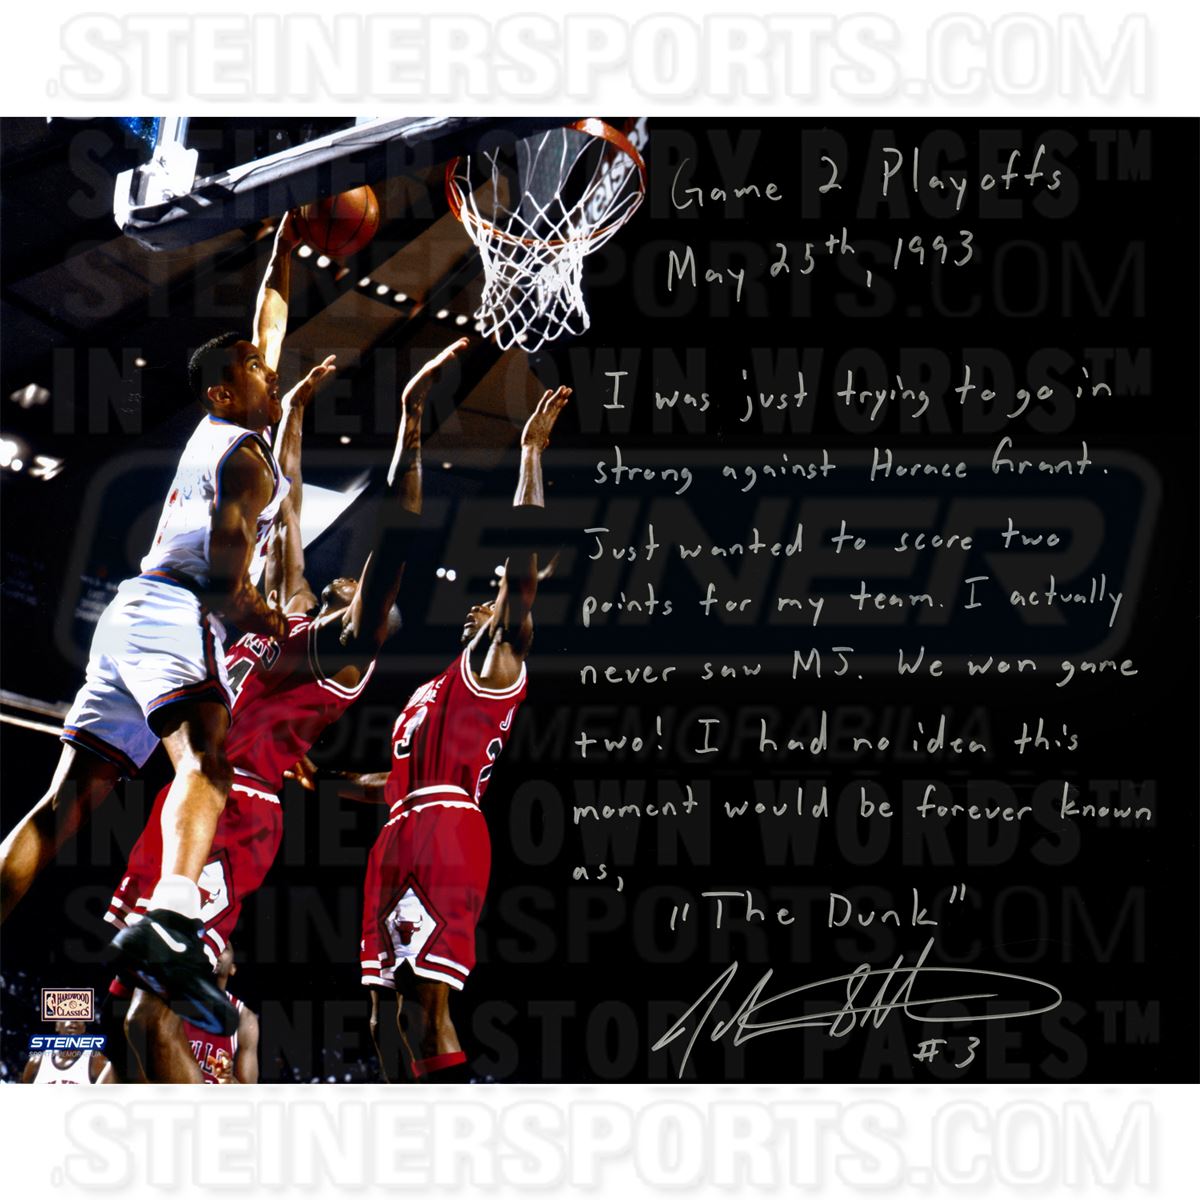 .STEINERSPORTS.COM
STEINER STORY PAGES™
STEINERSPORTS.COM
IN THEIR OWN WORDS™
STEINER
SPORTS MEMORABILIA
IN THEIR OWN WORDS™
STEINERSPORTS.COM
STEINER STORY PAGES™
Game 2 Playoffs
May 25th, 1993
I was just trying to go in
strong against Horace Grant.
Just wanted to score two
points for my team. I actually
never saw MJ. We won game
two! I had no idea this
moment would be forever known
as,
"The Dunk"
#3
HARDWOOD
CLASSICS
STEINER
SPORTS MEMORABILIA
.STEINERSPORTS.COM